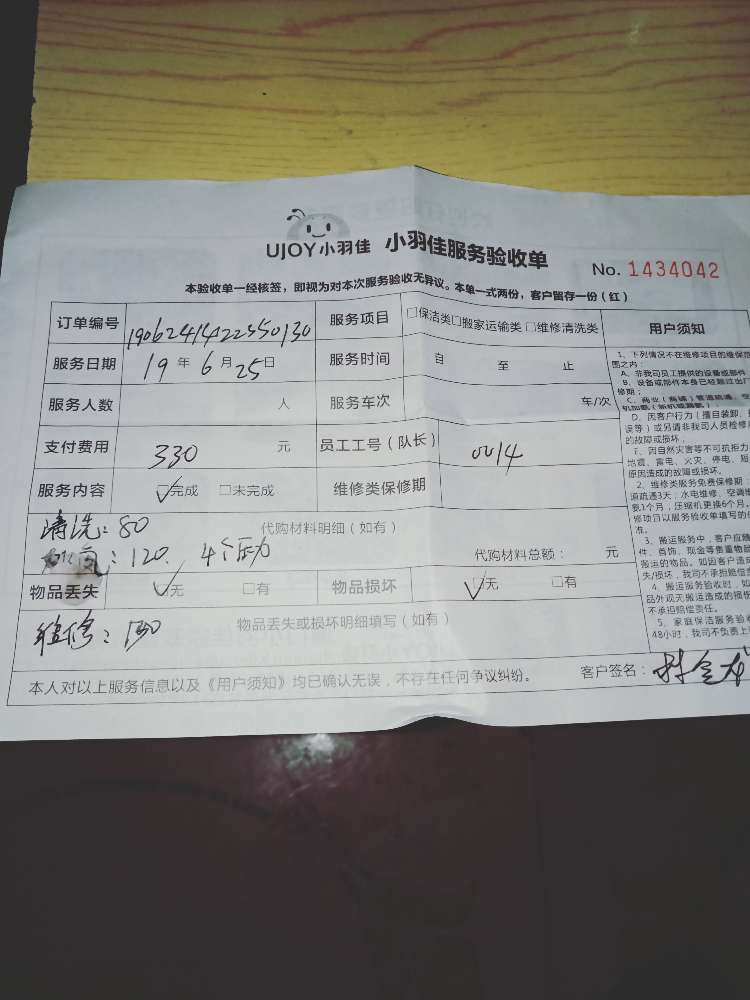 UJOY小羽佳 小羽佳服务验收单
No. 1434042
本验收单一经核签，即视为对本次服务验收无异议。本单一式两份，客户留存一份（红）
订单编号 服务项目 □保洁类□搬家运输类 □维修清洗类
服务日期 19年6月25日 服务时间 自 至 止
服务人数 人 服务车次 车/次
支付费用 330 元 员工工号（队长） 0014
服务内容 ☑完成 □未完成 维修类保修期
清洗：80 代购材料明细（如有）
氟：120. 4个压力 代购材料总额： 元
物品丢失 ☑无 □有 物品损坏 ☑无 □有
维修：130 物品丢失或损坏明细填写（如有）
本人对以上服务信息以及《用户须知》均已确认无误，不存在任何争议纠纷。 客户签名：
用户须知
1、下列情况不在维修项目的维保范
围之内：
A、非我司员工提供的设备或部件
B、设备或部件本身已经超过出厂
修期；
D、因客户行为（擅自装卸、
误等）或另请非我司人员检修
的故障或损坏，
E、因自然灾害等不可抗拒力
地震、雷电、火灾、停电、短
原因造成的故障或损坏。
2、维修类服务免费保修期：
道疏通3天；水电维修、空调维
氨1个月，压缩机更换6个月。
修项目以服务验收单填写的
准。
3、搬运服务中，客户应随
件、首饰、现金等贵重物品
搬运的物品。如因客户遗
失/损坏，我司不承担赔偿
4、搬运服务验收时，如
品外观无搬运造成的损
不承担赔偿责任。
5、家庭保洁服务验收
48小时，我司不负责上